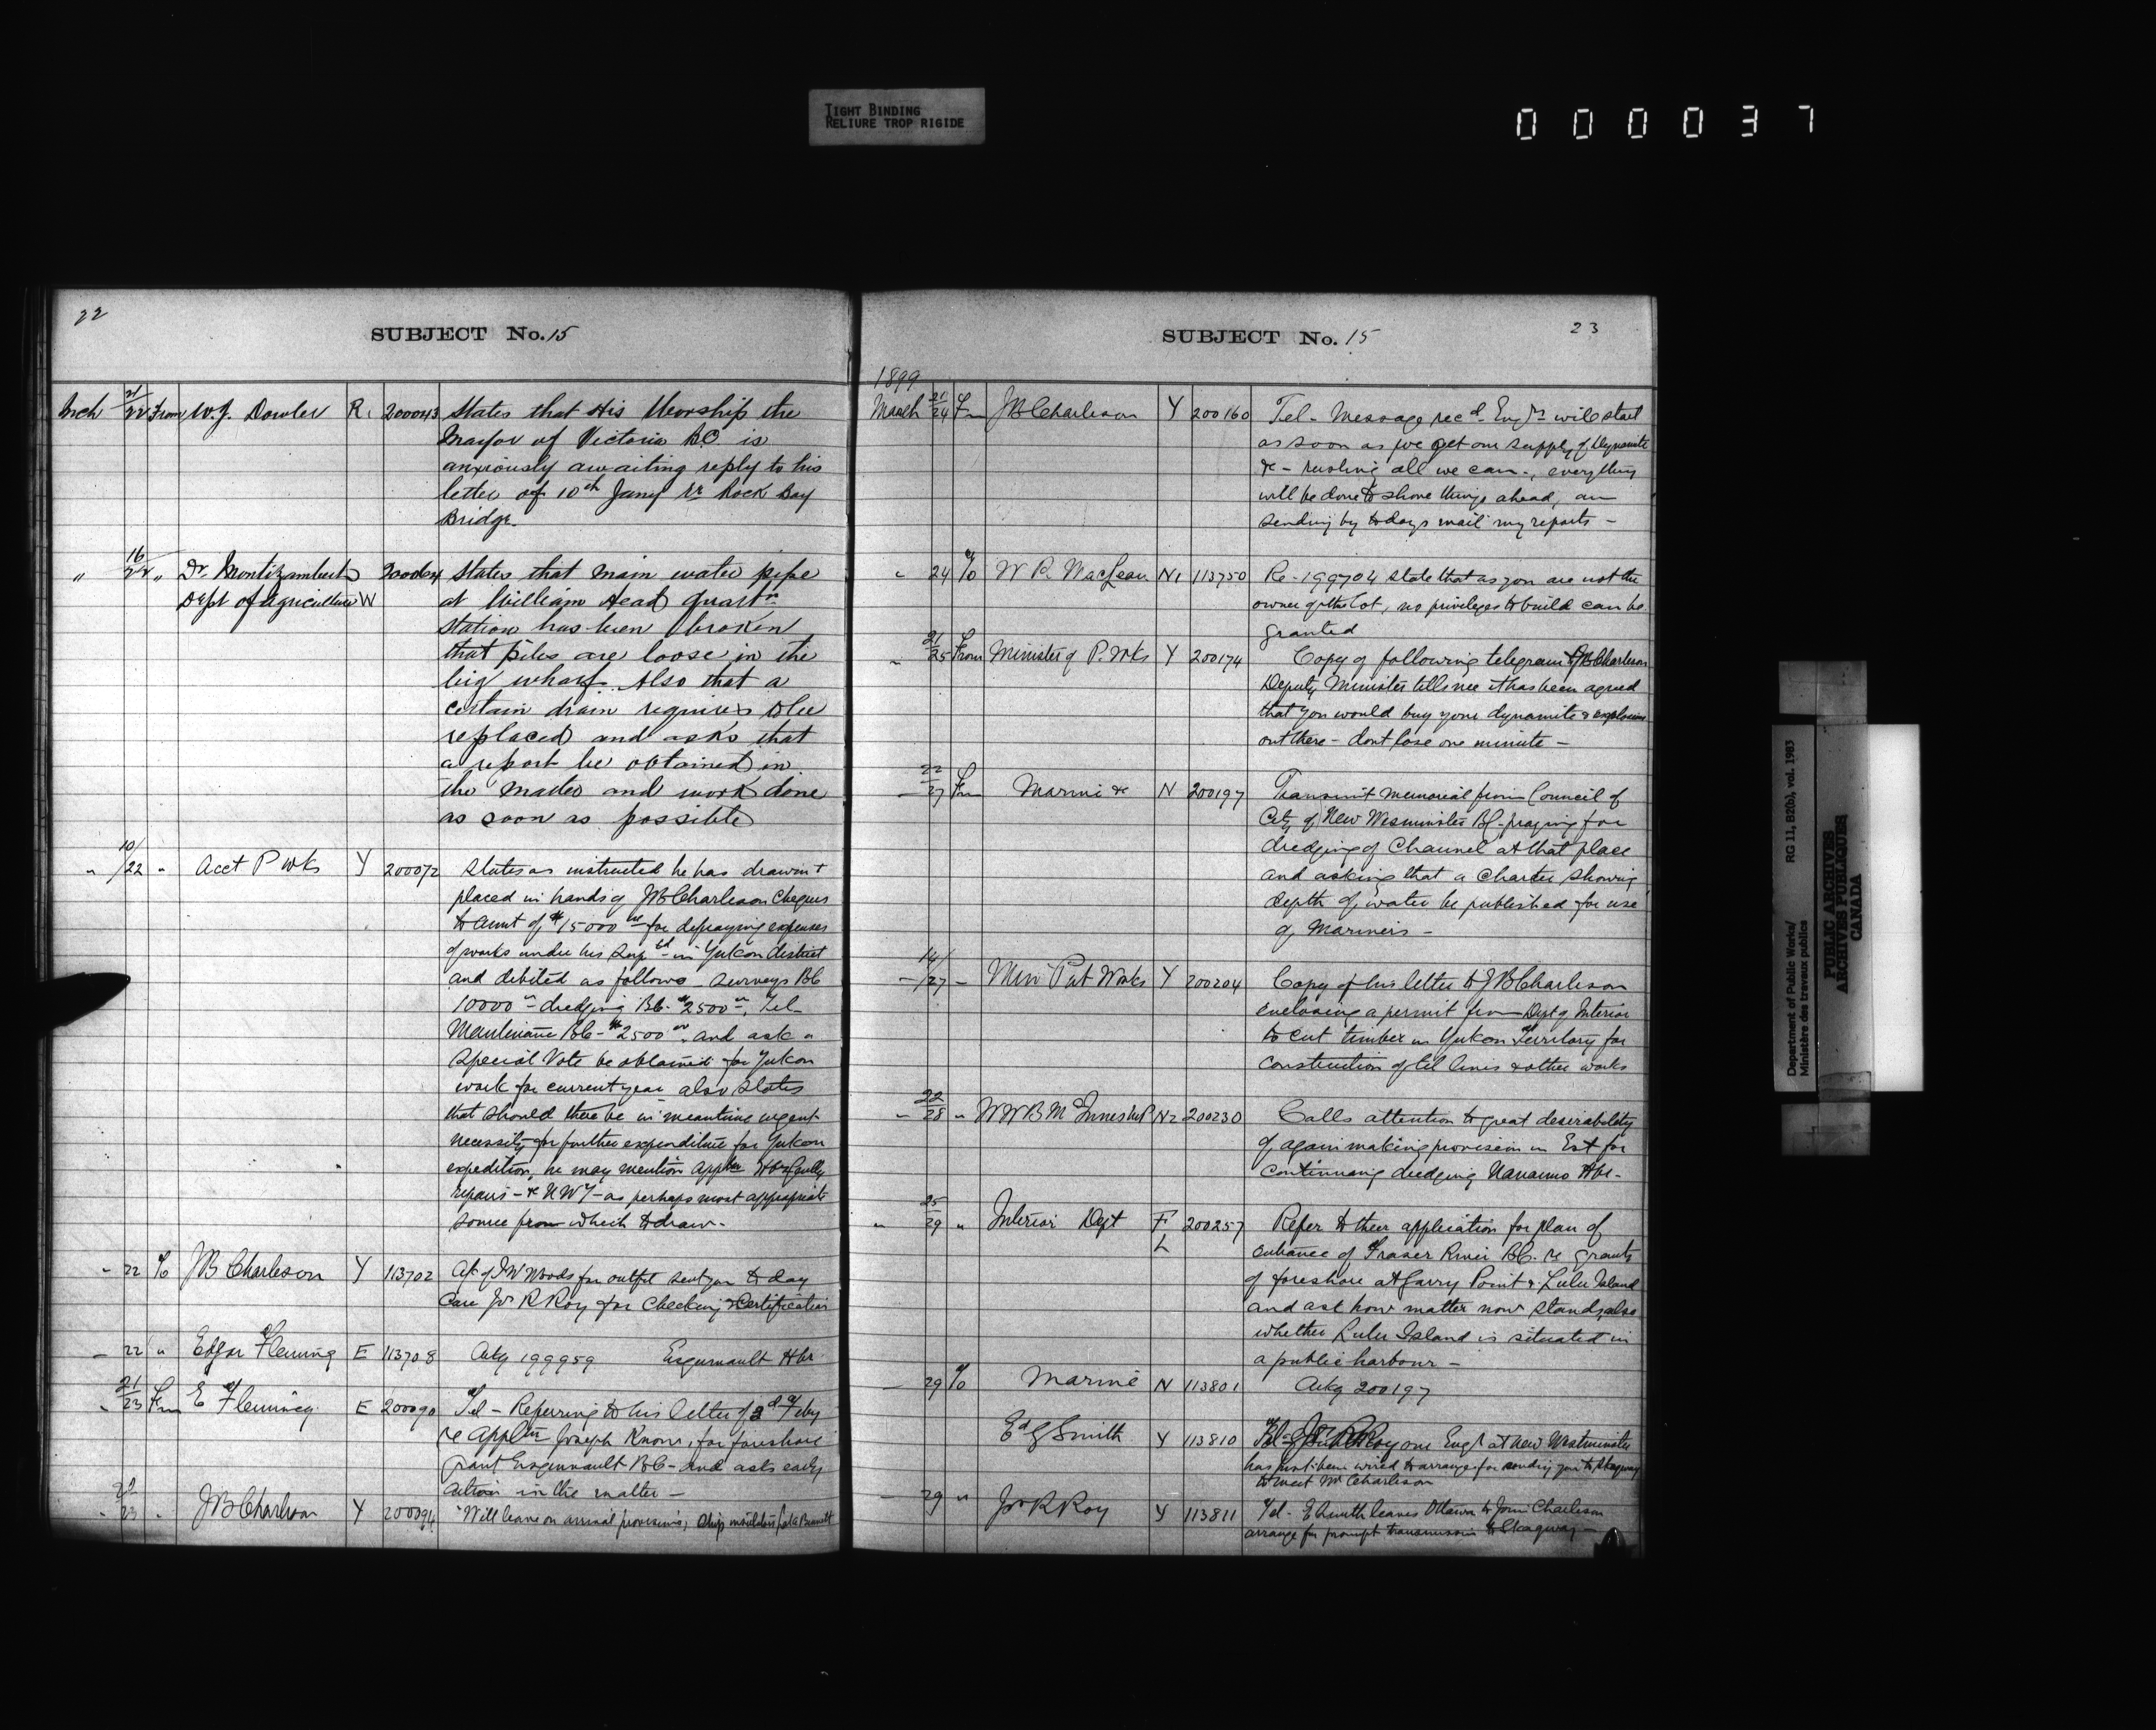 TIGHT BINDING
RELIURE TROP RIGIDE
000037
22
SUBJECT No. 15
Mch 21/22 From W. J. Dowler R. 200043 States that His Worship the
Mayor of Victoria BC is
anxiously awaiting reply to his
letter of 10th Jany re Rock Bay
Bridge.
" 16/22 " Dr. Montizambert 200064 States that main water pipe
Dept of Agriculture W at William Head Quartn
station has been broken
that piles are loose in the
big wharf. Also that a
certain drain requires to be
replaced and asks that
a report be obtained in
the matter and work done
as soon as possible
" 10/22 " Acct P Wks Y 200072 States as instructed he has drawn &
placed in hands of JB Charleson Cheques
to amt of $15000 for defraying expenses
of works under his in Yukon district
and debited as follows Surveys BC
10000 dredging BC. $2500 Tel
Maintenance BC - $2500 and ask a
Special Vote be obtained for Yukon
work for current year also states
that should there be in meantime urgent
necessity for further expenditure for Yukon
expedition, he may mention Appn Hbr
repairs - & NWT - as perhaps most appropriate
source from which to draw -
" 22 To JB Charleson Y 113702 of J W Woods for outfit sent you to day
Care Jos R Roy for Checking & Certification
- 22 " Edgar Fleming E 113708 Ackg 199959 Esquimault Hbr
" 21/23 Fm E Fleming E 200090 Tel - Referring to his letter of 2d Feby
re Appln Joseph for foreshore
grant Esquimault BC - and asks early
action in the matter -
" 22/23 " JB Charleson Y 200094 "Will leave on arrival provisions, Ship insulators Bennett
SUBJECT No. 15
23
1899
March 21/24 Fm JB Charleson Y 200160 Tel - Message recd Engrs will start
as soon as we get our supply of Dynamite
&c - rushing all we can -, everything
will be done to shove things ahead, am
sending by todays mail my reports -
" 24 To W R MacLean N1 113750 Re - 199704 state that as you are not the
owner of the lot, no privileges to build can be
granted
" 21/25 From Minister of P. Wks Y 200174 Copy of following telegram to JB Charleson
Deputy Minister tells me it has been agreed
that you would buy your dynamite & explosives
out there - dont lose one minute -
- 22/27 Fm Marine &c N 200197 Transmit memorial from Council of
City of New Wesminster BC - praying for
dredging of Channel at that place
and asking that a Charter showing
depth of water be published for use
of Mariners -
- 14/27 - Min Pub Works Y 200204 Copy of his letter to JB Charleson
enclosing a permit from Dept of Interior
to cut timber in Yukon Territory for
construction of tel lines & other works
" 22/28 " WWB McInnes MP N2 200230 Calls attention to great desirability
of again making provision in Est for
continuing dredging Nanaimo Hbr -
" 25/29 " Interior Dept F 200257 Refer to their application for plan of
L entrance of Fraser River BC. re grants
of foreshore at Garry Point & Lulu Island
and ask how matter now stands, also
whether Lulu Island is situated in
a public harbour -
- 29 To Marine N 113801 Ackg 200197
Ed G Smith Y 113810 Tel - our Engr at New Westminster
has just been wired to arrange for sending you to Skagway
to meet Mr Charleson
- 29 " Jos R Roy Y 113811 Tel - E Smith leaves Ottawa to join Charleson
arrange for prompt transmission to Skagway -
Department of Public Works/ RG 11, B2(b), vol. 1983
Ministère des travaux publics
PUBLIC ARCHIVES
ARCHIVES PUBLIQUES
CANADA